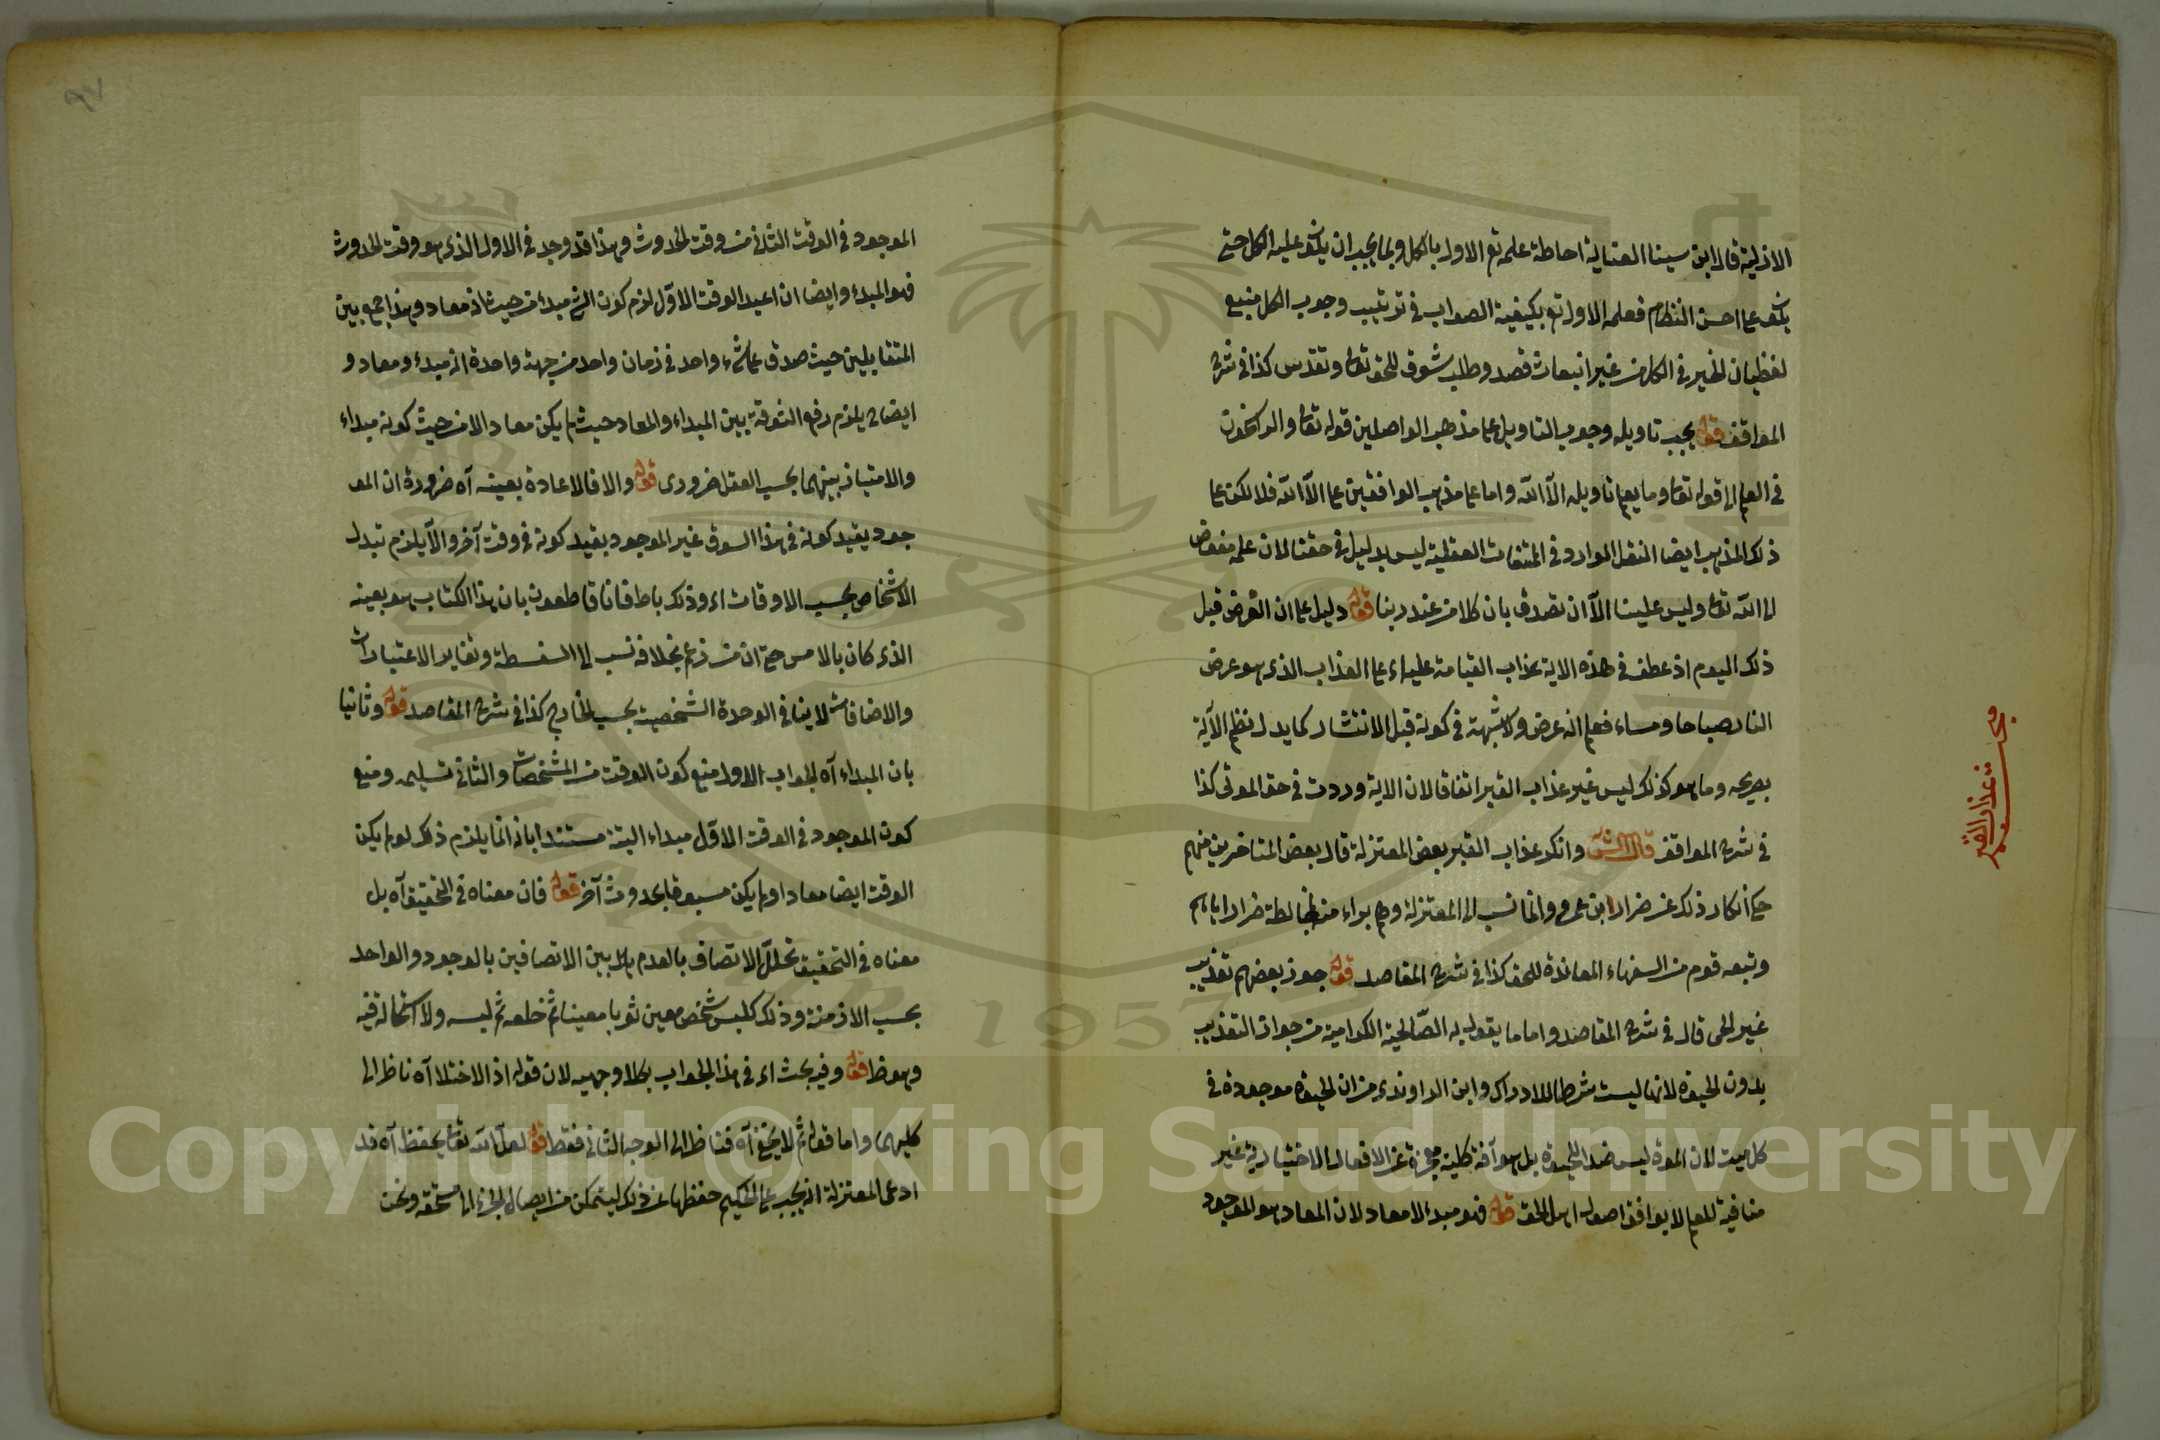 الازلية قال ابن سينا العناية احاطة علمه تع الاول بالكل وبما يجب ان يكون عليه الكل حتى
يكون على احسن النظام فعلمه الاول تع بكيفية الصواب في ترتيب وجوب الكل منبع
لفيضان الخير في الكل من غير انبعاث قصد وطلب شوق للحق تعا وتقدس كذا في شرح
المواقف قوله يجب تاويله وجوب التاويل على مذهب الواصلين قوله تعا والراسخون
في العلم الى قوله تعا وما يعلم تاويله الا الله واما على مذهب الواقفين على الا الله فلا لكن على
ذلك المذهب ايضا النقل الوارد في الممتنعات العقلية ليس بدليل في حقنا لان علمه مفوض
الى الله تعا وليس علينا الا ان نصدق بان كلا من عند ربنا قوله دليل على ان العرض قبل
ذلك اليوم اذ عطف في هذه الاية عذاب القيامة عليه اى على العذاب الذى هو عرض
النار صباحا ومساء فعلم انه عرض ولا شبهة في كونه قبل الانتشار كما يدل نظم الآية
بصريحه وما هو كذلك ليس غير عذاب القبر اتفاقا لان الاية وردت في حق الموتى كذا
في شرح المواقف قال الش وانكر عذاب القبر بعض المعتزلة قال بعض المتاخرين منهم
حكى انكار ذلك عن ضرار ابن عمرو وانما نسب الى المعتزلة وهم براء منه لمخالطة ضرار اياهم
وتبعه قوم من السفهاء المعاندة للحق كذا في شرح المقاصد قوله جوز بعضهم تعذيب
غير الحى قال في شرح المقاصد واما ما يقول به الصالحية الكرامية من جواز التعذيب
بدون الحيوة لانها ليست شرطا للادراك وابن الراوندى من ان الحيوة موجودة في
كل ميت لان الموت ليس ضدا للحيوة بل هو آفة كلية معجزة عن الافعال الاختيارية غير
منافية للعلم لا يوافق اصول اهل الحق قوله فهو مبدء لا معاد لان المعاد هو الموجود
مبحث عذاب القبر
٩٧
الموجود في الوقت الثانى من وقت الحدوث وهذا قد وجد في الاول الذى هو وقت الحدوث
فهو المبدء وايضا ان اعيد الوقت الاول لزم كون الشئ مبدء من حيث انه معاد وهذا جمع بين
المتقابلين حيث صدق على شئ واحد في زمان واحد من جهة واحدة انه مبدء ومعاد و
ايضا يلزم رفع التفرقة بين المبداء والمعاد حيث لم يكن معاد الا من حيث كونه مبداء
والامتياز بينهما بحسب العقل ضرورى قوله والا فالاعادة بعينه آه ضرورة ان المو
جود بقيد كونه في هذا السوق غير الموجود بقيد كونه في وقت آخر والا يلزم تبدل
الاشخاص بحسب الاوقات اء وذلك بط فانا قاطعون بان هذا الكتاب هو بعينه
الذى كان بالامس حتى ان من زعم بخلافه نسب الى السفسطة وتغاير الاعتبارات
والاضافات لا ينافى الوحدة الشخصية بحسب الخارج كذا في شرح المقاصد قوله وثانيا
بان المبداء آه الجواب الاول منع كون الوقت من المشخصات والثانى تسليمه ومنع
كون الموجود في الوقت الاول مبداء البتة مستندا بانه انما يلزم ذلك لو لم يكن
الوقت ايضا معادا ولم يكن مسبوقا بحدوث آخر قوله فان معناه في التحقيق آه بل
معناه في التحقيق تخلل الاتصاف بالعدم بل بين الاتصافين بالوجود والواحد
بحسب الازمنة وذلك كلبس شخص معين ثوبا معينا ثم خلعه ثم لبسه ولا استحالة فيه
وهو ظ قوله وفيه بحث اء في هذا الجواب بكلا وجهيه لان قوله اذ الاختلا آه ناظر الى
كليهما واما قوله ثم لا يخفى آه فناظر الى الوجه الثانى فقط قوله لعل الله تعا يحفظ آه قد
ادعى المعتزلة انه يجب على الحكيم حفظها عن ذلك ليتمكن من ايصال الجزاء الى مستحقه ونحن